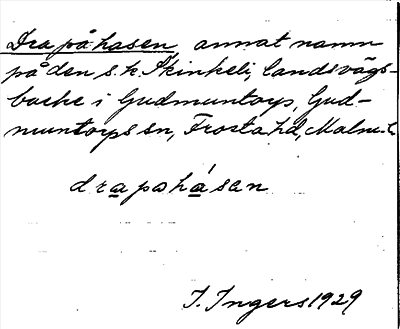 Dra på hasen, annat namn
på den s.k. Skinkeli, landsvägs-
backe i Gudmuntorp, Gud-
muntorps sn, Frosta hd, Malm.l.
drapahásen
I. Ingers 1929